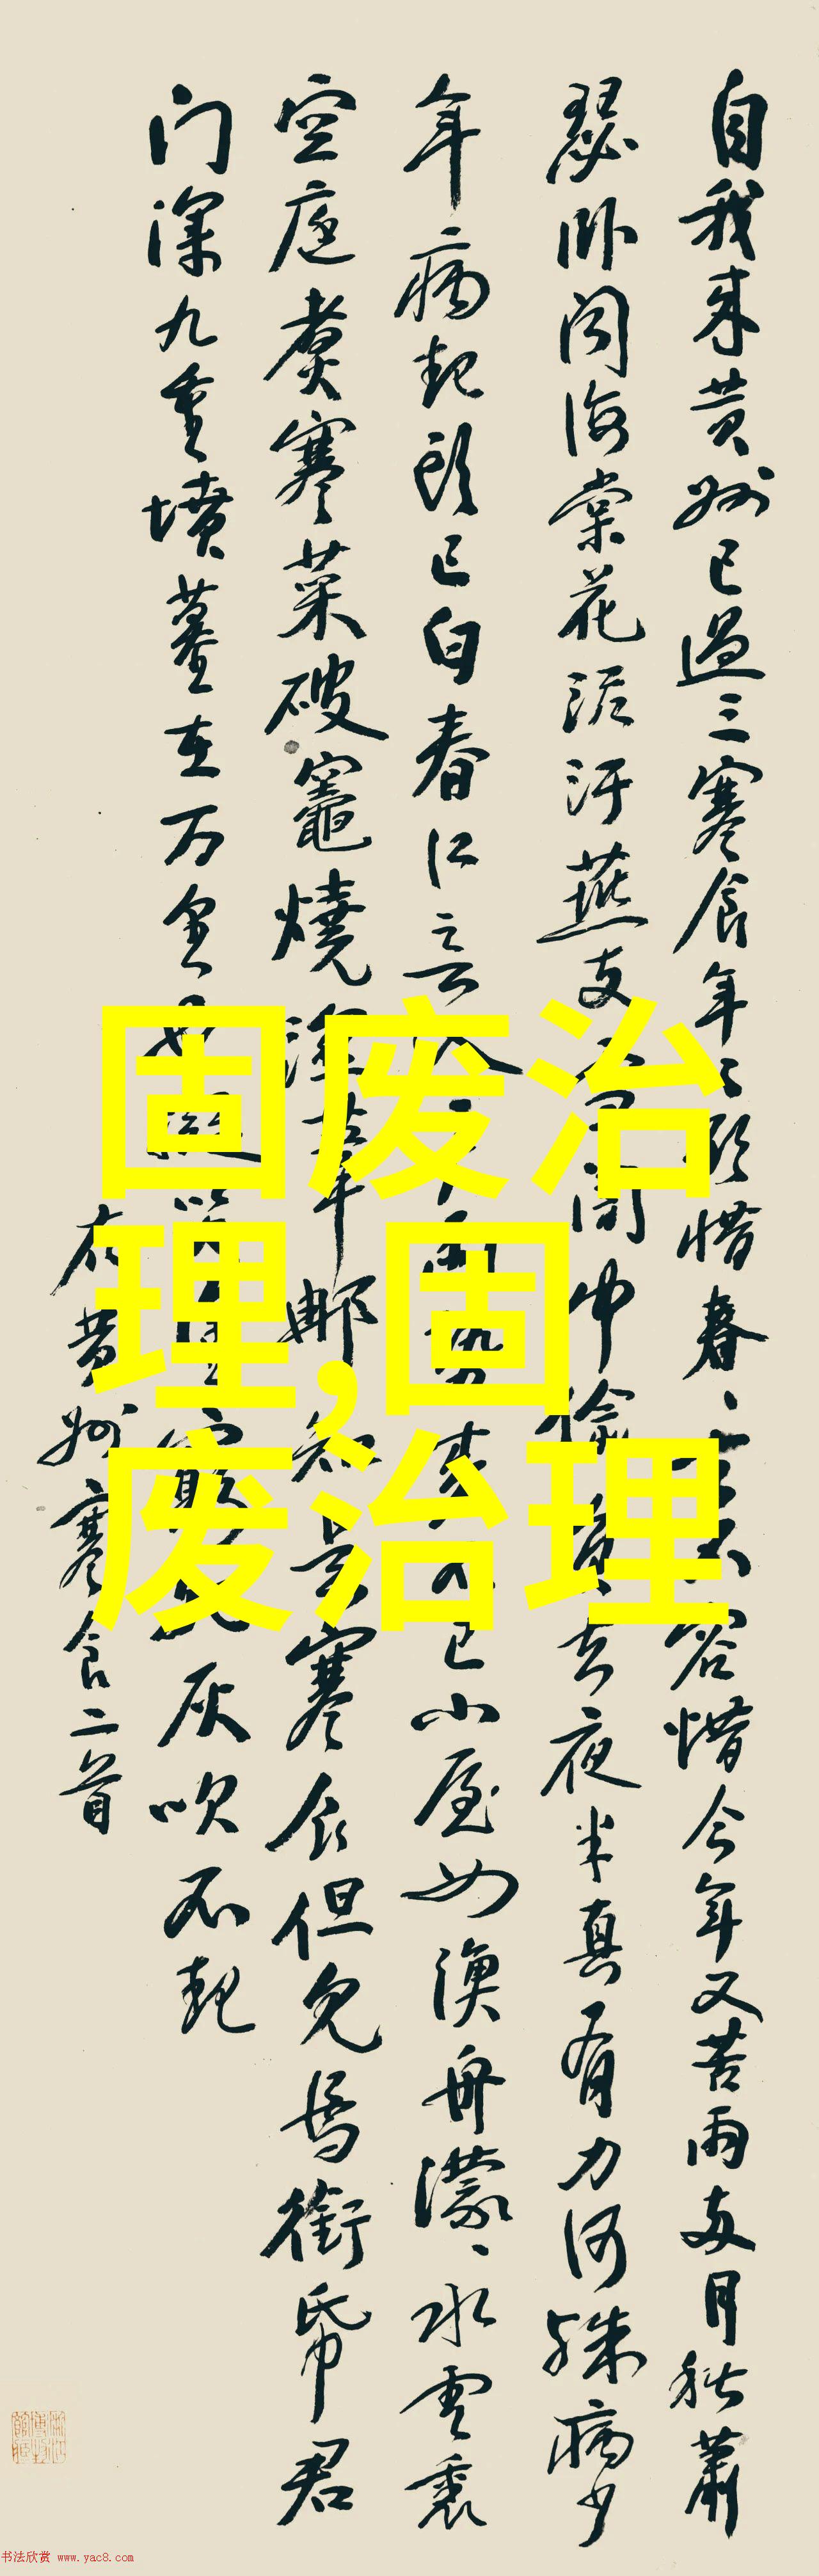 自我来黄州已過三寒食年〻欲惜春〻去不容惜今年又苦雨两月秋蕭
瑟卧闻海棠花泥汙燕支中偷負去夜半真有力何殊病少
年病起頭已白春江入雨势来不已小屋如漁舟濛〻水雲裏
空庖煮寒菜破竈燒濕葦那知是寒食但見烏銜帋君
门深九重墳墓在万里也擬哭窮灰吹不起
右黄州寒食二首
固废治
理,固
废治理
书法欣赏 www.yac8.com